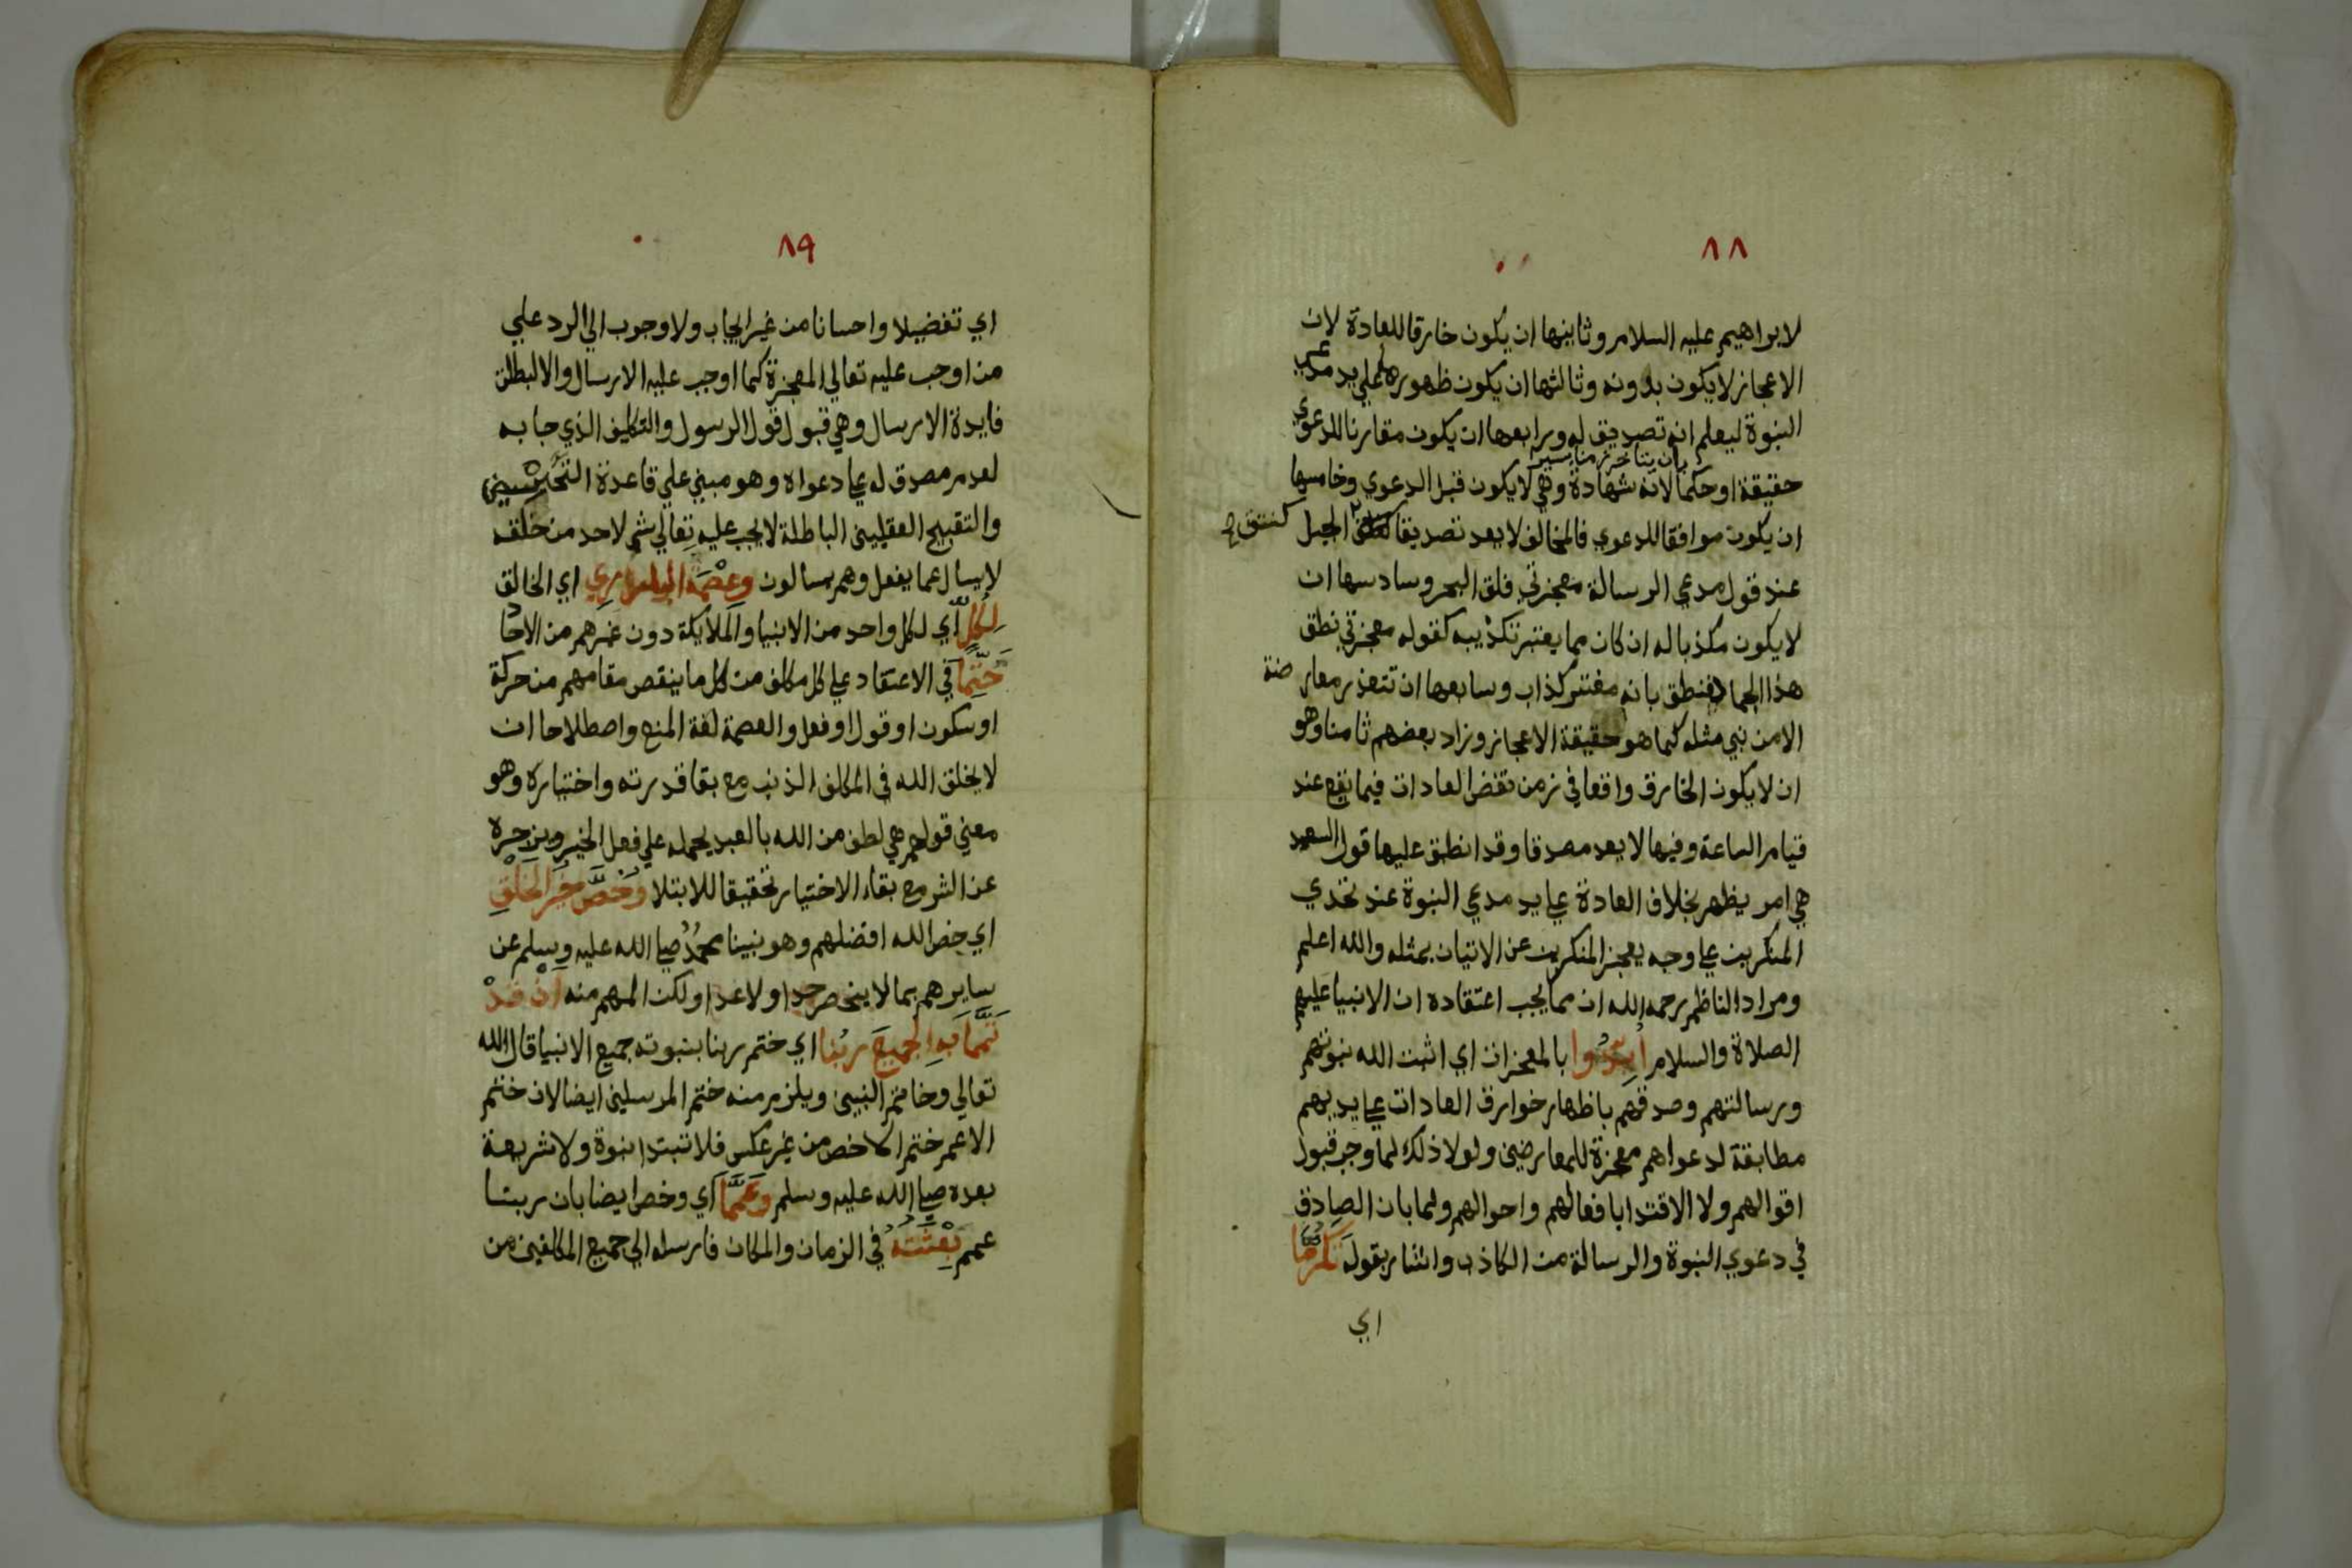 ٨٨
لابراهيم عليه السلام وثانيها ان يكون خارقا للعادة لان
الاعجاز لا يكون بدونه وثالثها ان يكون ظهوره علي يد مدعي
النبوة ليعلم انه تصديق له ورابعها ان يكون مقارنا للدعوي
حقيقة او حكما لانه شهادة وهي لا يكون قبل الدعوي وخامسها
ان يكون موافقا للدعوي فالمخالف لا يعد تصديقا الجبل كنتق
عند قول مدعي الرسالة معجزتي فلق البحر وسادسها ان
لا يكون مكذبا له ان كان مما يعتبر تكذيبه كقوله معجزتي نطق
هذا الجماد فنطق بانه مفتر كذاب وسابعها ان تتعذر معارضة
الا من نبي مثله كما هو حقيقة الاعجاز وزاد بعضهم ثامنا وهو
ان لا يكون الخارق واقعا في زمن نقض العادات فيما يقع عند
قيام الساعة وفيها لا يعد مصدقا وقد انطبق عليها قول السعد
هي امر يظهر بخلاف العادة علي يد مدعي النبوة عند تحدي
المنكرين علي وجه يعجز المنكرين عن الاتيان بمثله والله اعلم
ومراد الناظم رحمه الله ان مما يجب اعتقاده ان الانبيا عليهم
الصلاة والسلام ايدوا بالمعجزات اي اثبت الله نبوتهم
ورسالتهم وصدقهم باظهار خوارق العادات علي ايديهم
مطابقة لدعواهم معجزة للمعارضين ولولا ذلك لما وجب قبول
اقوالهم ولا الاقتدا بافعالهم واحوالهم ولما بان الصادق
في دعوي النبوة والرسالة من الكاذب واشار بقوله تكرما
اي
٨٩
اي تفضيلا واحسانا من غير ايجاب ولا وجوب الي الرد علي
من اوجب عليه تعالي المعجزة كما اوجب عليه الارسال والا لبطلت
فايدة الارسال وهي قبول قول الرسول والتكليف الذي جا به
لعدم مصدق له علي دعواه وهو مبني علي قاعدة التحسين
والتقبيح العقليين الباطلة لا يجب عليه تعالي شي لاحد من خلقه
لا يسال عما يفعل وهم يسالون وعصمة الباري اي الخالق
لكل اي لكل واحد من الانبيا والملايكة دون غيرهم من الاحاد
حتما في الاعتقاد علي كل مكلف من كل ما ينقص مقامهم من حركة
او سكون او قول او فعل والعصمة لغة المنع واصطلاحا ان
لا يخلق الله في المكلف الذنب مع بقا قدرته واختياره وهو
معني قولهم هي لطف من الله بالعبد يحمله علي فعل الخير ويزجره
عن الشر مع بقاء الاختيار تحقيقا للابتلا وخص خير الخلق
اي خص الله افضلهم وهو نبينا محمد صلي الله عليه وسلم عن
سايرهم بما لا ينحصر حدا ولا عدا ولكن المهم منه ان قد
تمما به الجميع ربنا اي ختم ربنا بنبوته جميع الانبيا قال الله
تعالي وخاتم النبيين ويلزم منه ختم المرسلين ايضا لان ختم
الاعم ختم الاخص من غير عكس فلا تبتدا نبوة ولا شريعة
بعده صلي الله عليه وسلم وعمما اي وخص ايضا بان ربنا
عمم بعثته في الزمان والمكان فارسله الي جميع المكلفين من